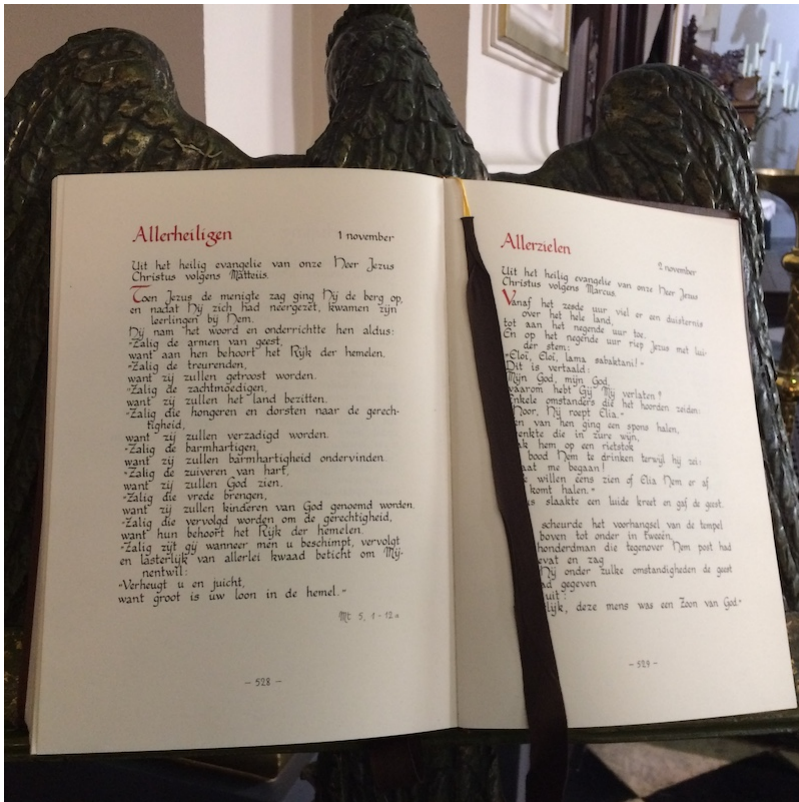 Allerheiligen
1 november
Uit het heilig evangelie van onze Heer Jezus
Christus volgens Matteüs.
Toen Jezus de menigte zag ging Hij de berg op,
en nadat Hij zich had neergezet, kwamen zijn
leerlingen bij Hem.
Hij nam het woord en onderrichtte hen aldus:
"Zalig de armen van geest,
want aan hen behoort het Rijk der hemelen.
"Zalig de treurenden,
want zij zullen getroost worden.
"Zalig de zachtmoedigen,
want zij zullen het land bezitten.
"Zalig die hongeren en dorsten naar de gerech-
tigheid,
want zij zullen verzadigd worden.
"Zalig de barmhartigen,
want zij zullen barmhartigheid ondervinden.
"Zalig de zuiveren van hart,
want zij zullen God zien.
"Zalig die vrede brengen,
want zij zullen kinderen van God genoemd worden.
"Zalig die vervolgd worden om de gerechtigheid,
want hun behoort het Rijk der hemelen.
"Zalig zijt gij wanneer men u beschimpt, vervolgt
en lasterlijk van allerlei kwaad beticht om Mij-
nentwil:
"Verheugt u en juicht,
want groot is uw loon in de hemel."
Mt 5, 1-12a
- 528 -
Allerzielen
2 november
Uit het heilig evangelie van onze Heer Jezus
Christus volgens Marcus.
Vanaf het zesde uur viel er een duisternis
over het hele land,
tot aan het negende uur toe.
En op het negende uur riep Jezus met lui-
der stem:
"Eloï, Eloï, lama sabaktani!"
Dit is vertaald:
Mijn God, mijn God,
waarom hebt Gij Mij verlaten?
Enkele omstanders die het hoorden zeiden:
"Hoor, Hij roept Elia."
van hen ging een spons halen,
die in zure wijn,
hem op een rietstok
bood Hem te drinken terwijl hij zei:
me begaan!
willen eens zien of Elia Hem er af
komt halen."
slaakte een luide kreet en gaf de geest.
scheurde het voorhangsel van de tempel
boven tot onder in tweeën.
honderdman die tegenover Hem post had
en zag
Hij onder zulke omstandigheden de geest
gegeven
uit:
deze mens was een Zoon van God."
- 529 -